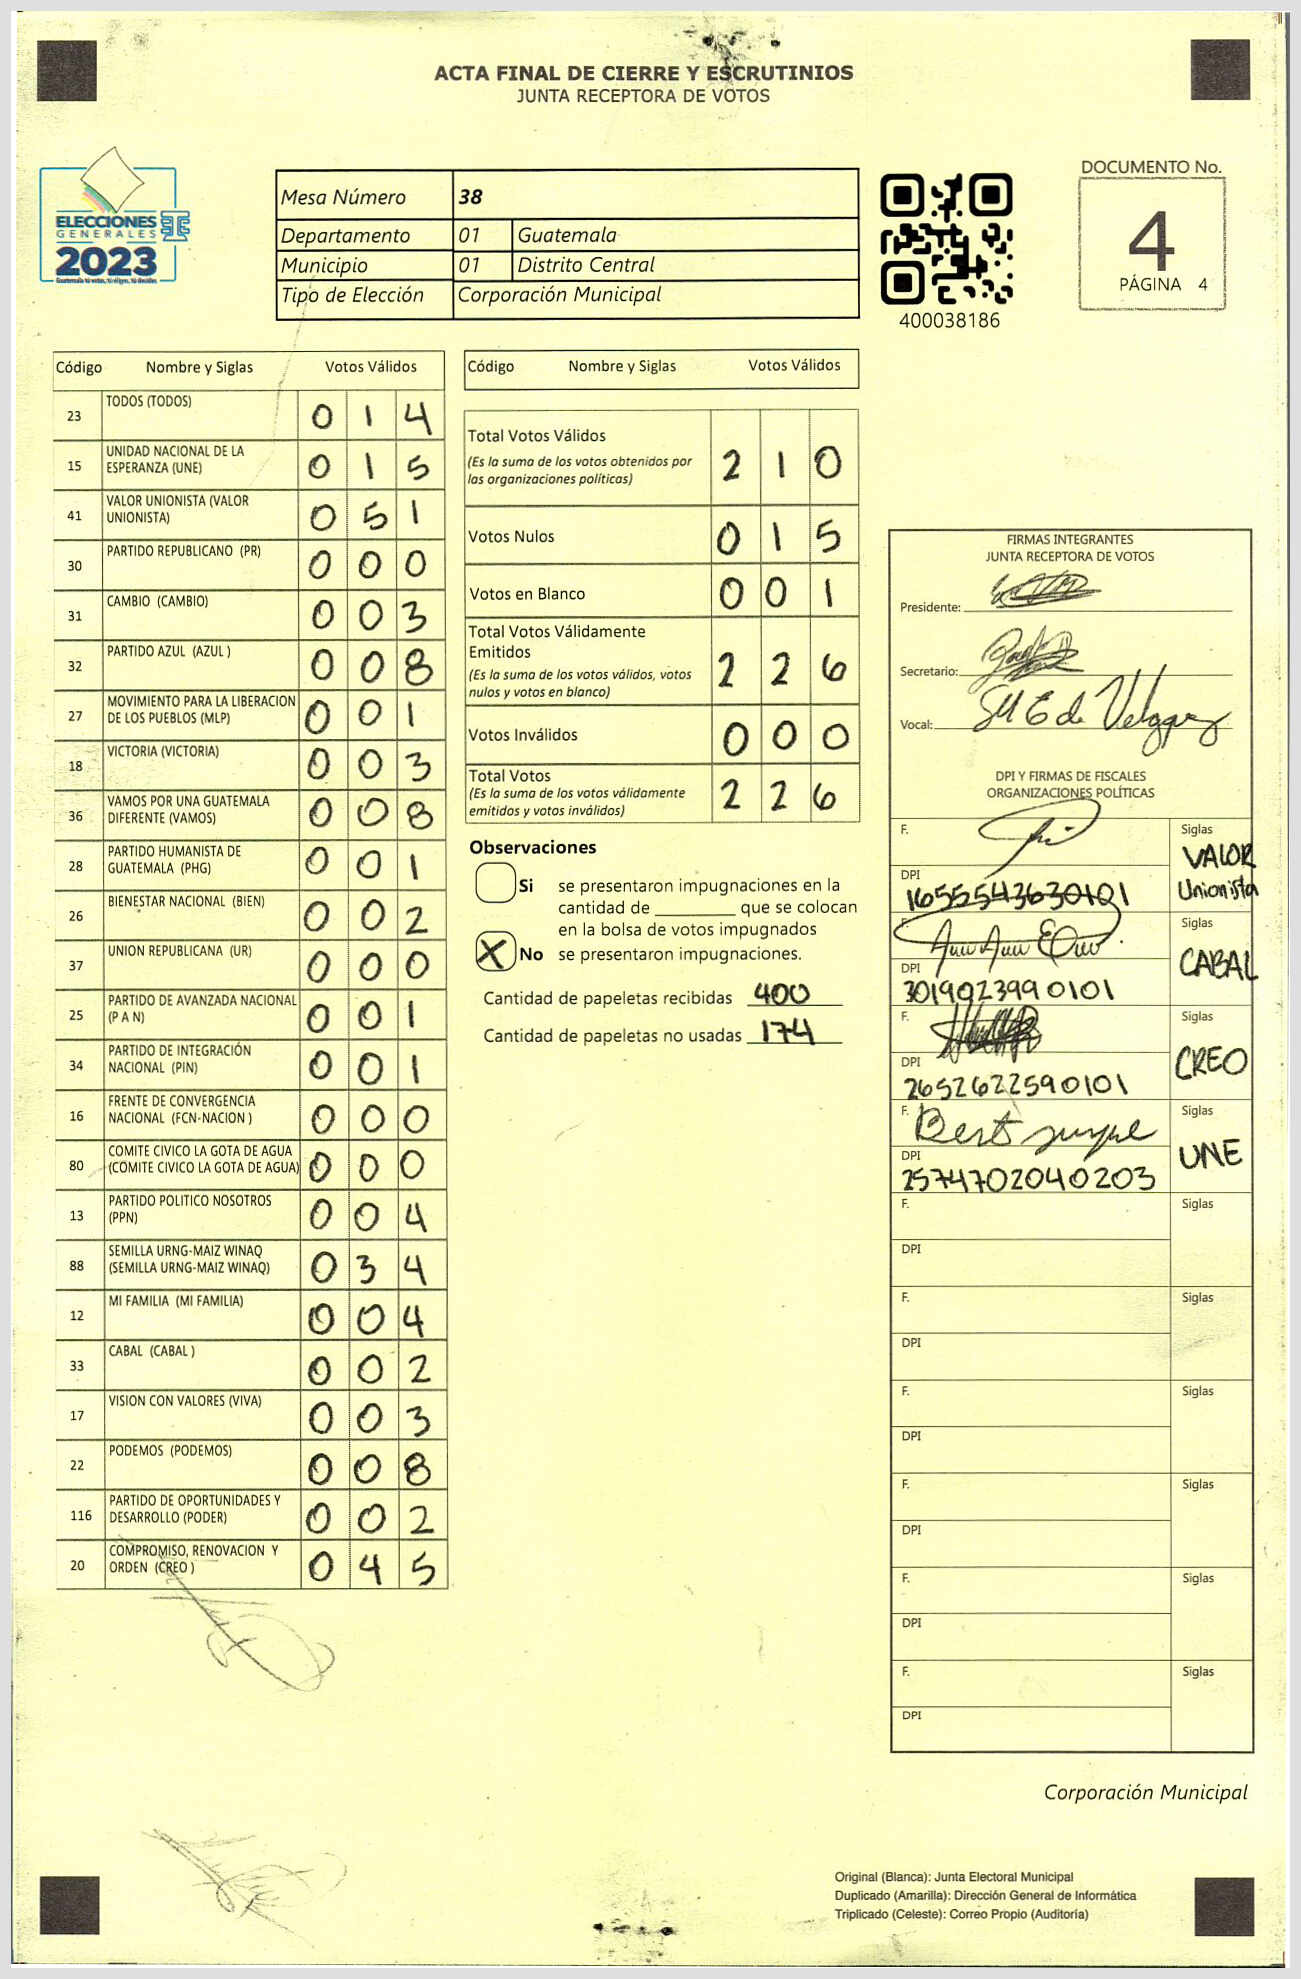 ACTA FINAL DE CIERRE Y ESCRUTINIOS
JUNTA RECEPTORA DE VOTOS
ELECCIONES
GENERALES
2023
Mesa Número 38
Departamento 01 Guatemala
Municipio 01 Distrito Central
Tipo de Elección Corporación Municipal
400038186
DOCUMENTO No.
4
PÁGINA 4
Código Nombre y Siglas Votos Válidos
23 TODOS (TODOS) 0 1 4
15 UNIDAD NACIONAL DE LA
ESPERANZA (UNE) 0 1 5
41 VALOR UNIONISTA (VALOR
UNIONISTA) 0 5 1
30 PARTIDO REPUBLICANO (PR) 0 0 0
31 CAMBIO (CAMBIO) 0 0 3
32 PARTIDO AZUL (AZUL ) 0 0 8
27 MOVIMIENTO PARA LA LIBERACION
DE LOS PUEBLOS (MLP) 0 0 1
18 VICTORIA (VICTORIA) 0 0 3
36 VAMOS POR UNA GUATEMALA
DIFERENTE (VAMOS) 0 0 8
28 PARTIDO HUMANISTA DE
GUATEMALA (PHG) 0 0 1
26 BIENESTAR NACIONAL (BIEN) 0 0 2
37 UNION REPUBLICANA (UR) 0 0 0
25 PARTIDO DE AVANZADA NACIONAL
(P A N) 0 0 1
34 PARTIDO DE INTEGRACIÓN
NACIONAL (PIN) 0 0 1
16 FRENTE DE CONVERGENCIA
NACIONAL (FCN-NACION ) 0 0 0
80 COMITE CIVICO LA GOTA DE AGUA
(COMITE CIVICO LA GOTA DE AGUA) 0 0 0
13 PARTIDO POLITICO NOSOTROS
(PPN) 0 0 4
88 SEMILLA URNG-MAIZ WINAQ
(SEMILLA URNG-MAIZ WINAQ) 0 3 4
12 MI FAMILIA (MI FAMILIA) 0 0 4
33 CABAL (CABAL ) 0 0 2
17 VISION CON VALORES (VIVA) 0 0 3
22 PODEMOS (PODEMOS) 0 0 8
116 PARTIDO DE OPORTUNIDADES Y
DESARROLLO (PODER) 0 0 2
20 COMPROMISO, RENOVACION Y
ORDEN (CREO ) 0 4 5
Código Nombre y Siglas Votos Válidos
Total Votos Válidos
(Es la suma de los votos obtenidos por
las organizaciones políticas) 2 1 0
Votos Nulos 0 1 5
Votos en Blanco 0 0 1
Total Votos Válidamente
Emitidos
(Es la suma de los votos válidos, votos
nulos y votos en blanco) 2 2 6
Votos Inválidos 0 0 0
Total Votos
(Es la suma de los votos válidamente
emitidos y votos inválidos) 2 2 6
Observaciones
Si se presentaron impugnaciones en la
cantidad de ________ que se colocan
en la bolsa de votos impugnados
X No se presentaron impugnaciones.
Cantidad de papeletas recibidas 400
Cantidad de papeletas no usadas 174
FIRMAS INTEGRANTES
JUNTA RECEPTORA DE VOTOS
Presidente:
Secretario:
Vocal:
DPI Y FIRMAS DE FISCALES
ORGANIZACIONES POLÍTICAS
F. Siglas
VALOR
Unionista
DPI
1655543630101
F. Siglas
CABAL
DPI
3019023990101
F. Siglas
CREO
DPI
2652622590101
F. Siglas
UNE
DPI
2574702040203
F. Siglas
DPI
F. Siglas
DPI
F. Siglas
DPI
F. Siglas
DPI
F. Siglas
DPI
F. Siglas
DPI
Corporación Municipal
Original (Blanca): Junta Electoral Municipal
Duplicado (Amarilla): Dirección General de Informática
Triplicado (Celeste): Correo Propio (Auditoría)